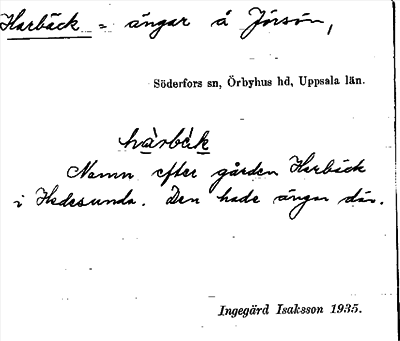 Harbäck = ängar å Jörsön,
Söderfors sn, Örbyhus hd, Uppsala län.
hàrbèk
Namn efter gården Harbäck
i Hedesunda. Den hade ängar där.
Ingegärd Isaksson 1935.